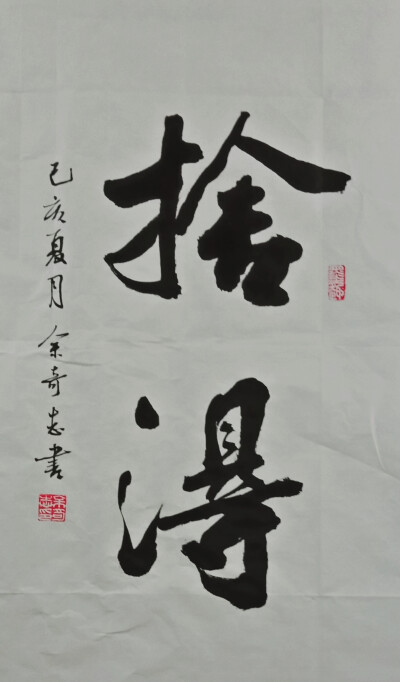 捨得
己亥夏月 余奇志書